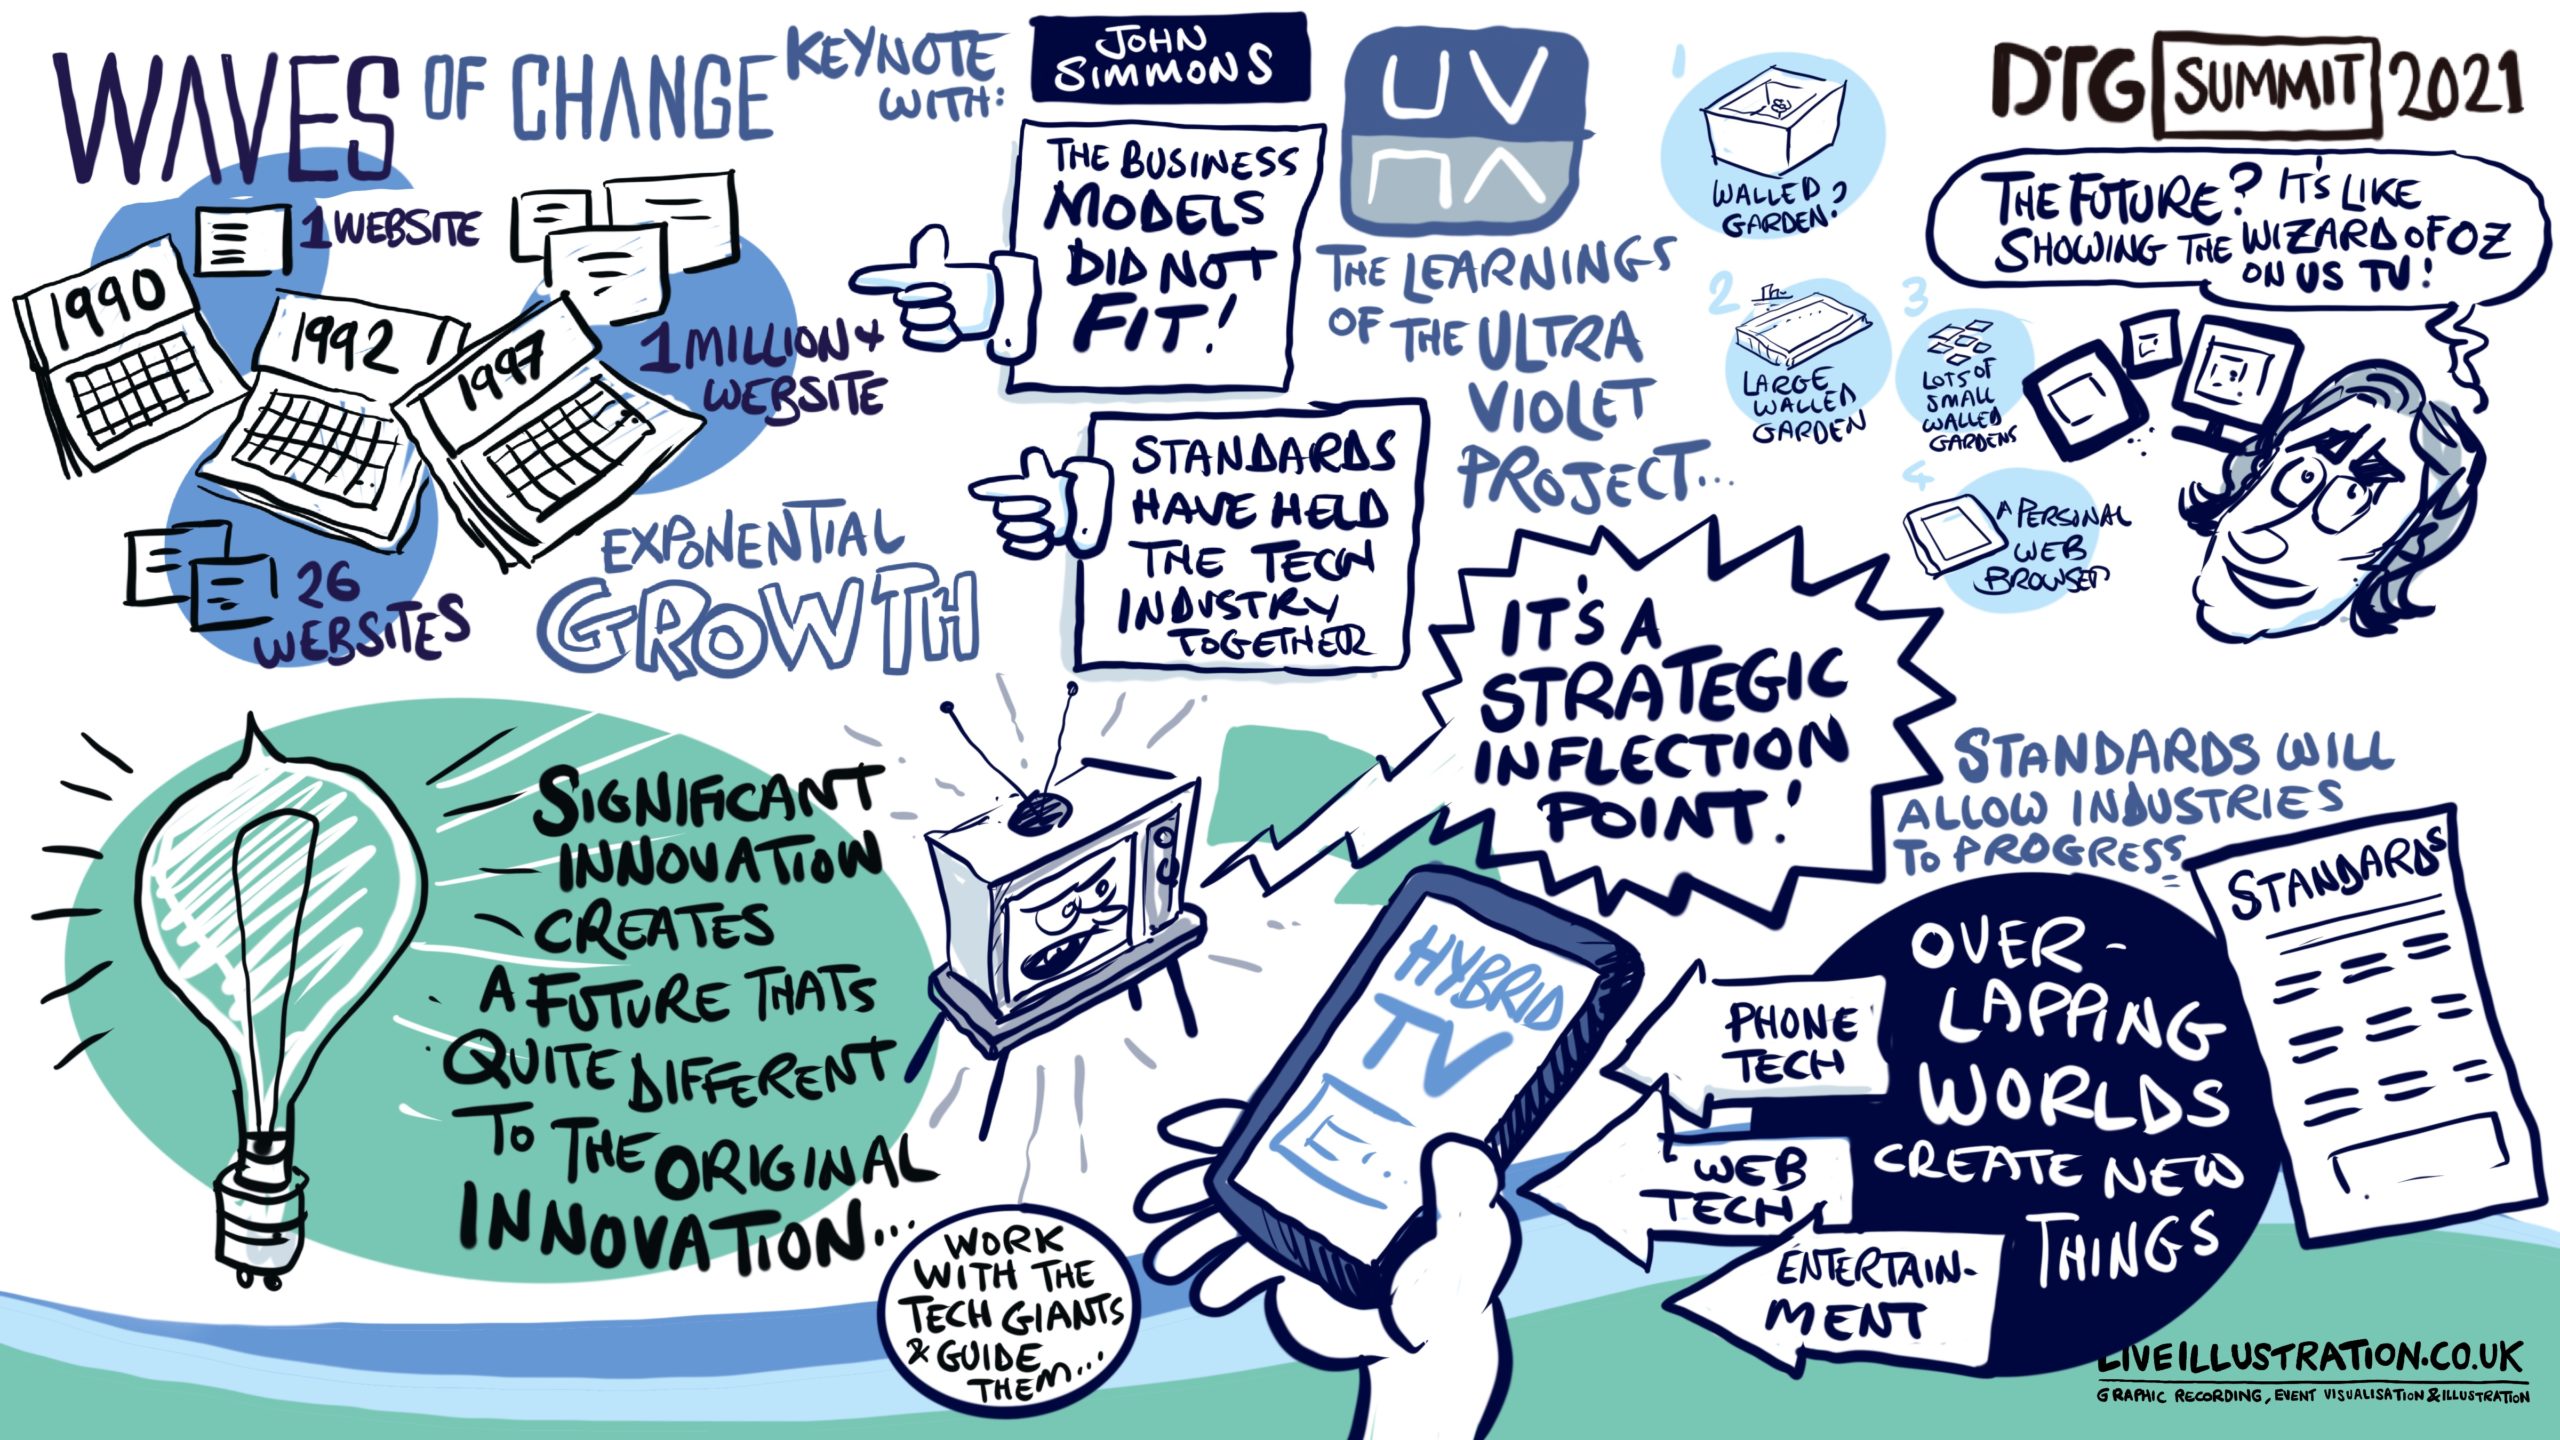 WAVES OF CHANGE
KEYNOTE
WITH:
JOHN
SIMMONS
1990
1 WEBSITE
1992
26
WEBSITES
1997
1 MILLION +
WEBSITE
EXPONENTIAL
GROWTH
THE BUSINESS
MODELS
DID NOT
FIT!
STANDARDS
HAVE HELD
THE TECH
INDUSTRY
TOGETHER
UV
THE LEARNINGS
OF THE ULTRA
VIOLET
PROJECT...
1
WALLED
GARDEN?
2
LARGE
WALLED
GARDEN
3
LOTS OF
SMALL
WALLED
GARDENS
4
A PERSONAL
WEB
BROWSER
DTG SUMMIT 2021
THE FUTURE? IT'S LIKE
SHOWING THE WIZARD OF OZ
ON US TV!
SIGNIFICANT
INNOVATION
CREATES
A FUTURE THATS
QUITE DIFFERENT
TO THE ORIGINAL
INNOVATION...
IT'S A
STRATEGIC
INFLECTION
POINT!
WORK
WITH THE
TECH GIANTS
& GUIDE
THEM...
HYBRID
TV
PHONE
TECH
WEB
TECH
ENTERTAIN-
MENT
STANDARDS WILL
ALLOW INDUSTRIES
TO PROGRESS
OVER-
LAPPING
WORLDS
CREATE NEW
THINGS
STANDARDS
LIVEILLUSTRATION.CO.UK
GRAPHIC RECORDING, EVENT VISUALISATION & ILLUSTRATION